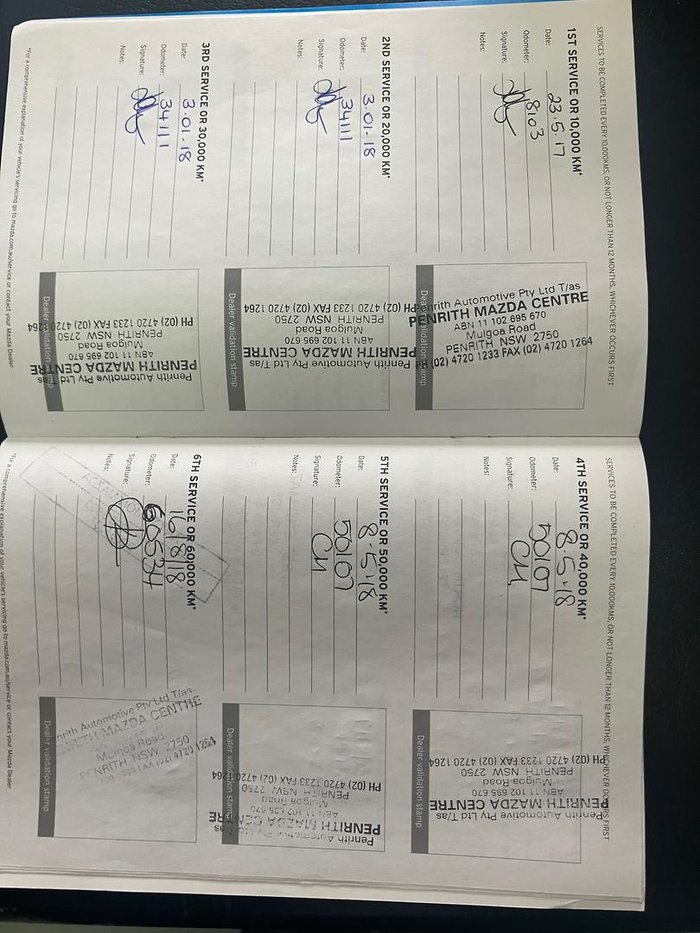 SERVICES TO BE COMPLETED EVERY 10,000KMS, OR NOT LONGER THAN 12 MONTHS, WHICHEVER OCCURS FIRST
1ST SERVICE OR 10,000 KM*
Date: 23.5.17
Odometer: 8103
Signature:
Notes:
Penrith Automotive Pty Ltd T/as
PENRITH MAZDA CENTRE
ABN 11 102 695 670
Mulgoa Road
PENRITH NSW 2750
PH (02) 4720 1233 FAX (02) 4720 1264
Dealer validation stamp
2ND SERVICE OR 20,000 KM*
Date: 3.01.18
Odometer: 34111
Signature:
Notes:
Penrith Automotive Pty Ltd T/as
PENRITH MAZDA CENTRE
ABN 11 102 695 670
Mulgoa Road
PENRITH NSW 2750
PH (02) 4720 1233 FAX (02) 4720 1264
Dealer validation stamp
3RD SERVICE OR 30,000 KM*
Date: 3.01.18
Odometer: 34111
Signature:
Notes:
Penrith Automotive Pty Ltd T/as
PENRITH MAZDA CENTRE
ABN 11 102 695 670
Mulgoa Road
PENRITH NSW 2750
PH (02) 4720 1233 FAX (02) 4720 1264
Dealer validation stamp
*For a comprehensive explanation of your vehicle's servicing go to mazda.com.au/service or contact your Mazda Dealer
SERVICES TO BE COMPLETED EVERY 10,000KMS, OR NOT LONGER THAN 12 MONTHS, WHICHEVER OCCURS FIRST
4TH SERVICE OR 40,000 KM*
Date: 8.5.18
Odometer: 50107
Signature: CM
Notes:
Penrith Automotive Pty Ltd T/as
PENRITH MAZDA CENTRE
ABN 11 102 695 670
Mulgoa Road
PENRITH NSW 2750
PH (02) 4720 1233 FAX (02) 4720 1264
Dealer validation stamp
5TH SERVICE OR 50,000 KM*
Date: 8.5.18
Odometer: 50107
Signature: CM
Notes:
Penrith Automotive Pty Ltd T/as
PENRITH MAZDA CENTRE
ABN 11 102 695 670
Mulgoa Road
PENRITH NSW 2750
PH (02) 4720 1233 FAX (02) 4720 1264
Dealer validation stamp
6TH SERVICE OR 60,000 KM*
Date: 16/8/18
Odometer: 60534
Signature:
Notes:
Penrith Automotive Pty Ltd T/as
MAZDA CENTRE
Mulgoa Road
PENRITH NSW 2750
FAX (02) 4720 1264
Dealer validation stamp
*For a comprehensive explanation of your vehicle's servicing go to mazda.com.au/service or contact your Mazda Dealer